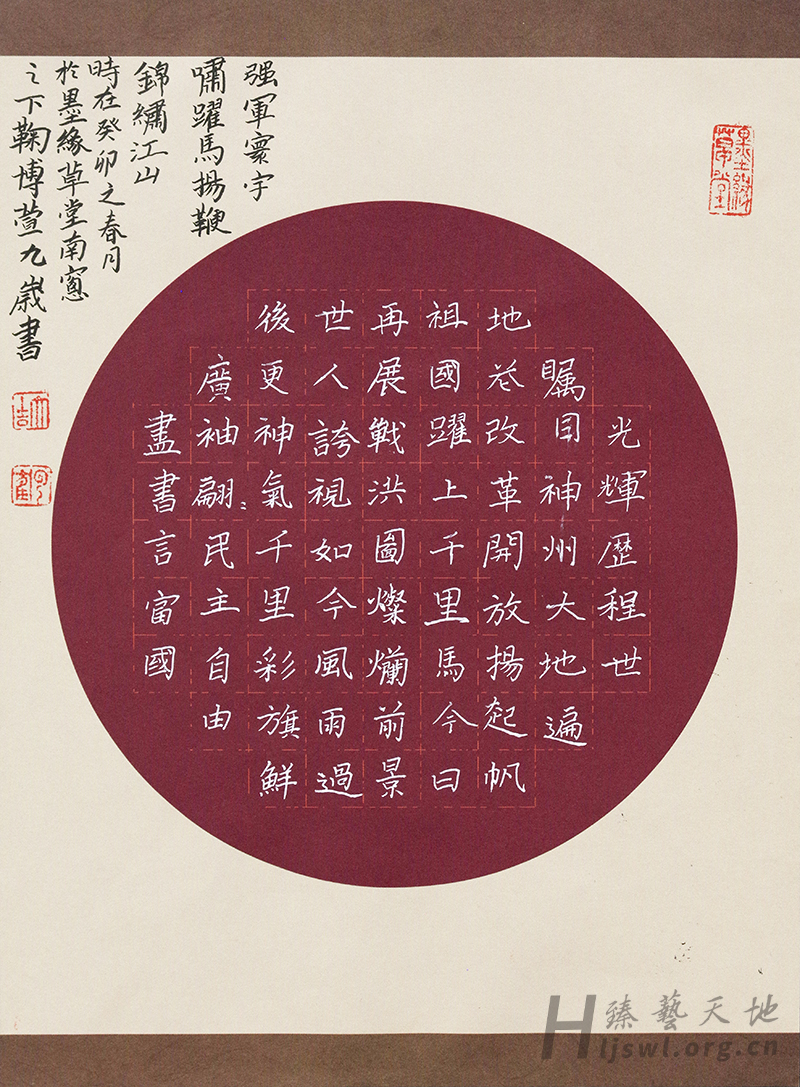 光輝歷程世
瞩目神州大地遍
地花改革開放揚起帆
祖國躍上千里馬今日
再展戰洪圖燦爛前景
世人誇視如今風雨過
後更神氣千里彩旗鮮
廣袖翩〻民主自由
盡書言富國
强軍寰宇
嘯躍馬揚鞭
錦繡江山
時在癸卯之春月
於墨緣草堂南窻
之下鞠博萱九歲書
墨緣草堂
臻藝天地
Hljswl.org.cn